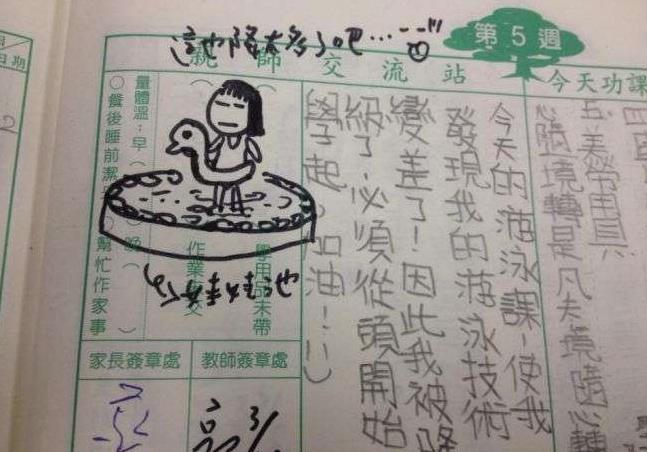 第5週
這也降太多了吧...
親師交流站
今天功課
五、美勞用具
心隨境轉是凡夫境隨心轉
今天的游泳課,使我
發現我的游泳技術
變差了!因此我被降
級了,必須從頭開始
學起。加油!:)
學用品未帶
作業 交
量體溫:早( 晚( )
○餐後睡前潔 ○幫忙作家事
家長簽章處
教師簽章處
日期